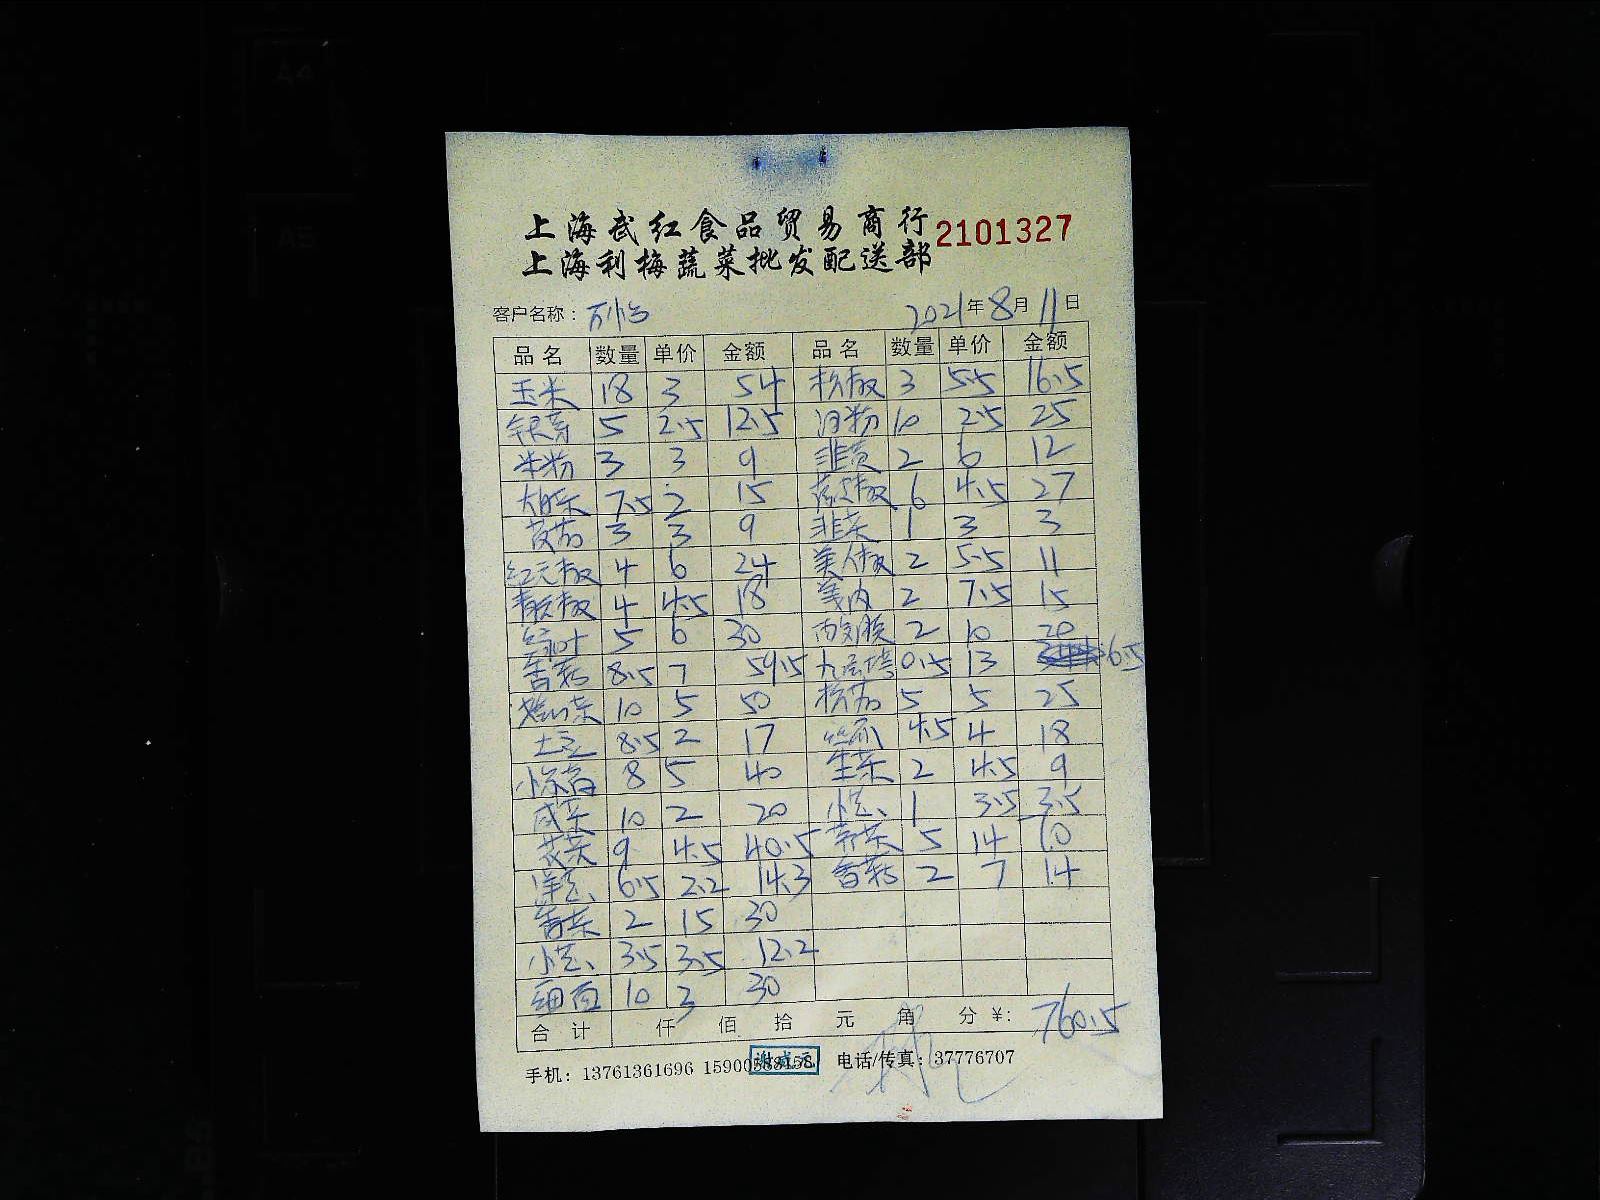 上海武红食品贸易商行 2101327
上海利梅蔬菜批发配送部
客户名称： 2021年8月11日
品名 数量 单价 金额 品名 数量 单价 金额
玉米 18 3 54 杭椒 3 5.5 16.5
银芽 5 2.5 12.5 河粉 10 2.5 25
米粉 3 3 9 韭黄 2 6 12
大白菜 7.5 2 15 6 4.5 27
茭茄 3 3 9 韭菜 1 3 3
红元椒 4 6 24 美人椒 2 5.5 11
青元椒 4 4.5 18 2 7.5 15
5 6 30 2 10 20
香菇 8.5 7 59.5 九层塔 0.5 13 6.5
10 5 50 杭茄 5 5 25
土豆 8.5 2 17 丝瓜 4.5 4 18
小木耳 8 5 40 生菜 2 4.5 9
咸菜 10 2 20 小葱 1 3.5 3.5
花菜 9 4.5 40.5 5 14 70
洋葱 6.5 2.2 14.3 香菇 2 7 14
香菜 2 15 30
小葱 3.5 3.5 12.2
细面 10 3 30
合计 仟 佰 拾 元 角 分 ¥: 760.5
手机：13761361696 15900588158 电话/传真：37776707